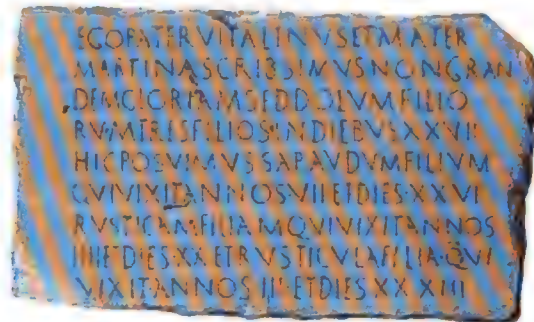 EGOPATERVITALINVSETMATER
MARTINASCRIBSIMVSNONGRAN
DEMGLORIAMSEDDOLVMFILIO
RVMTRESFILIOSINDIEBVSXXVII
HICPOSVIMVSSAPAVDVMFILIVM
QVIVIXITANNOSVIIETDIESXXVI
RVSTICAMFILIAMQVIVIXITANNOS
IIIIETDIESXXETRVSTICVLAFILIAQVI
VIXITANNOSIIIETDIESXXXIII